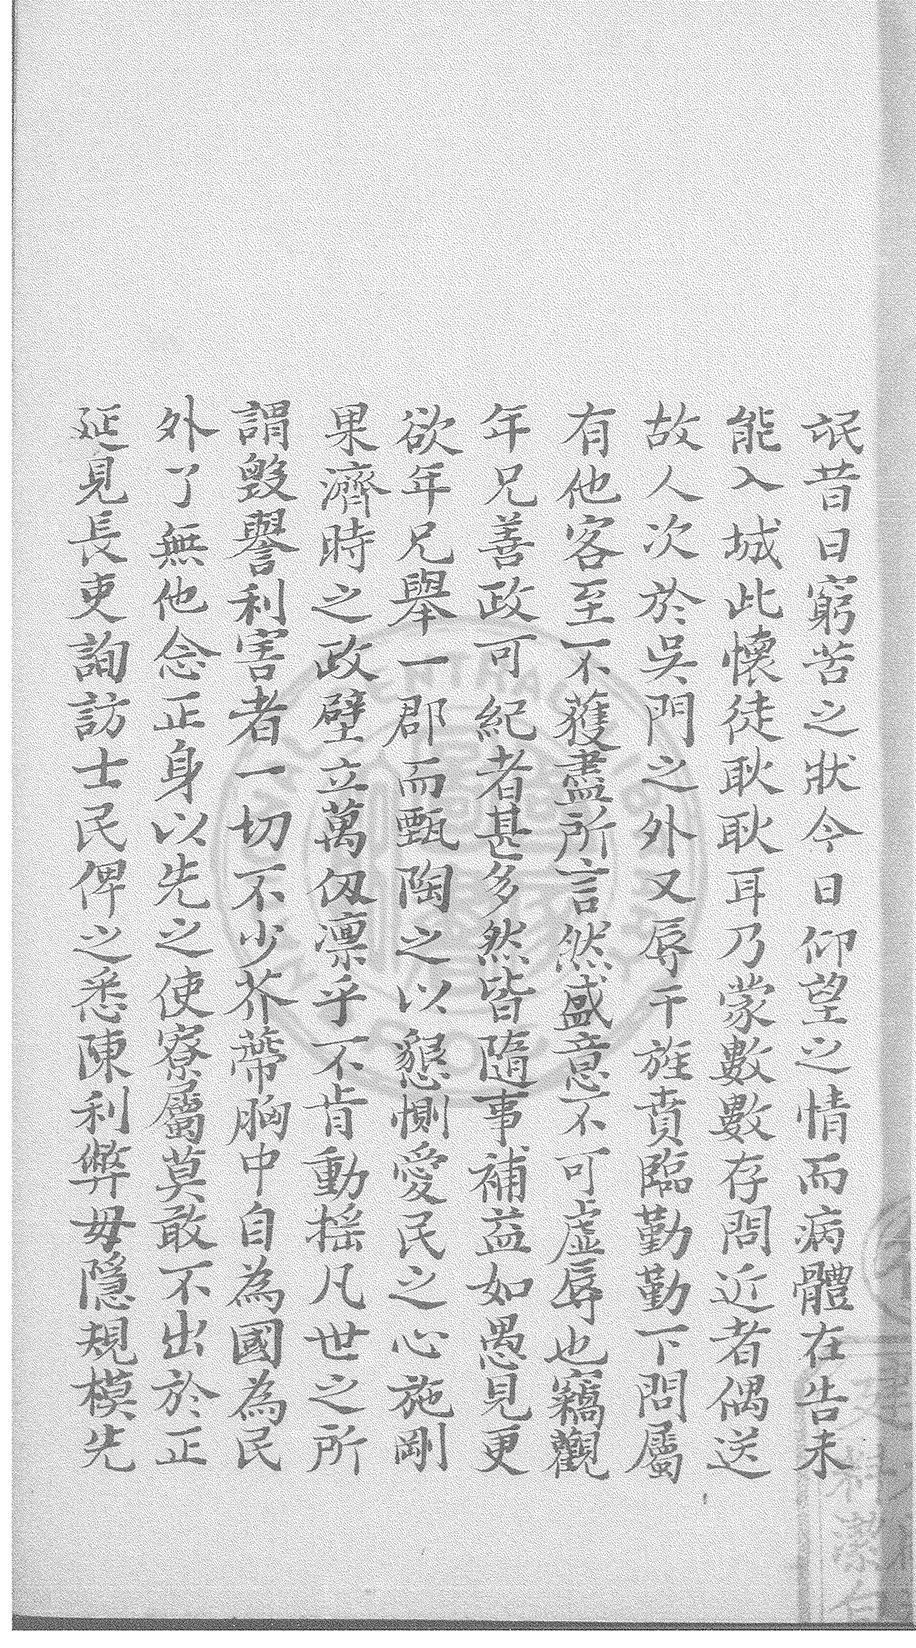 氓昔日窮苦之狀今日仰望之情而病體在告未
能入城此懷徒耿耿耳乃蒙數數存問近者偶送
故人次於吳門之外又辱干旌賁臨勤勤下問屬
有他客至不獲盡所言然盛意不可虛辱也竊觀
年兄善政可紀者甚多然皆隨事補益如愚見更
欲年兄舉一郡而甄陶之以懇惻愛民之心施剛
果濟時之政壁立萬仭凛乎不肯動揺凡世之所
謂毀譽利害者一切不少芥蔕胸中自為國為民
外了無他念正身以先之使寮屬莫敢不出於正
延見長吏詢訪士民俾之悉陳利弊毋隱規模先